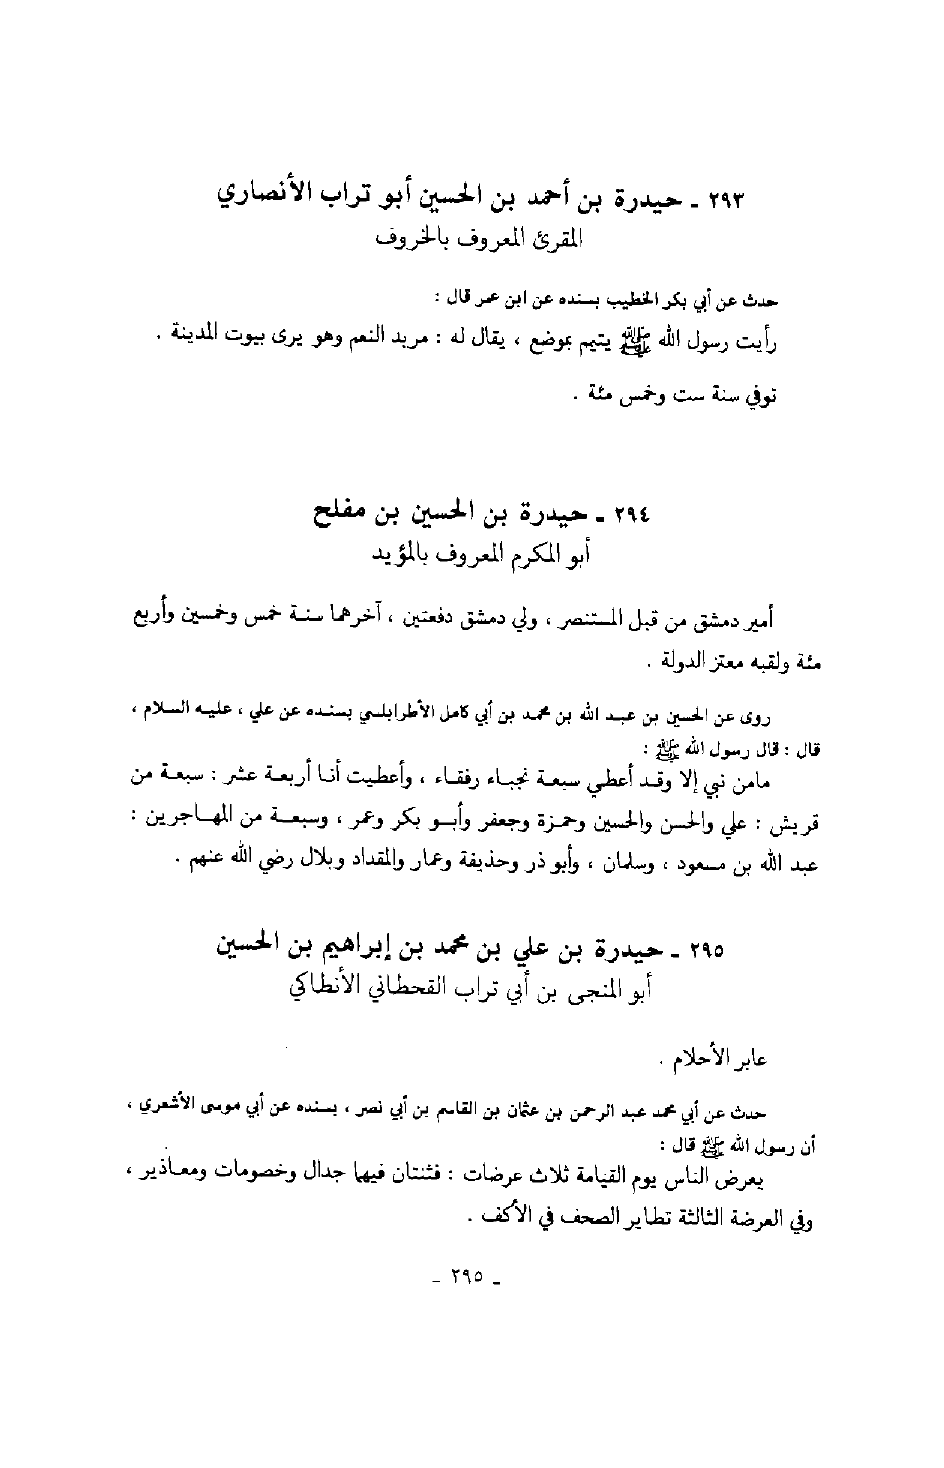 ٢٩٣ ـ حيدرة بن أحمد بن الحسين أبو تراب الأنصاري
المقرئ المعروف بالخروف
حدث عن أبي بكر الخطيب بسنده عن ابن عمر قال :
رأيت رسول الله ﷺ يتيم بموضع ، يقال له : مربد النعم وهو يرى بيوت المدينة .
توفي سنة ست وخمس مئة .
٢٩٤ ـ حيدرة بن الحسين بن مفلح
أبو المكرم المعروف بالمؤيد
أمير دمشق من قبل المستنصر ، ولي دمشق دفعتين ، آخرهما سنة خمس وخمسين وأربع
مئة ولقبه معتز الدولة .
روى عن الحسين بن عبد الله بن محمد بن أبي كامل الأطرابلسي بسنده عن علي ، عليه السلام ،
قال : قال رسول الله ﷺ :
مامن نبي إلا وقد أعطي سبعة نجباء رفقاء ، وأعطيت أنا أربعة عشر : سبعة من
قريش : علي والحسن والحسين وحمزة وجعفر وأبو بكر وعمر ، وسبعة من المهاجرين :
عبد الله بن مسعود ، وسلمان ، وأبو ذر وحذيفة وعمار والمقداد وبلال رضي الله عنهم .
٢٩٥ ـ حيدرة بن علي بن محمد بن إبراهيم بن الحسين
أبو المنجى بن أبي تراب القحطاني الأنطاكي
عابر الأحلام .
حدث عن أبي محمد عبد الرحمن بن عثمان بن القاسم بن أبي نصر ، بسنده عن أبي موسى الأشعري ،
أن رسول الله ﷺ قال :
يعرض الناس يوم القيامة ثلاث عرضات : فثنتان فيها جدال وخصومات ومعاذير ،
وفي العرضة الثالثة تطاير الصحف في الأكف .
ـ ٢٩٥ ـ